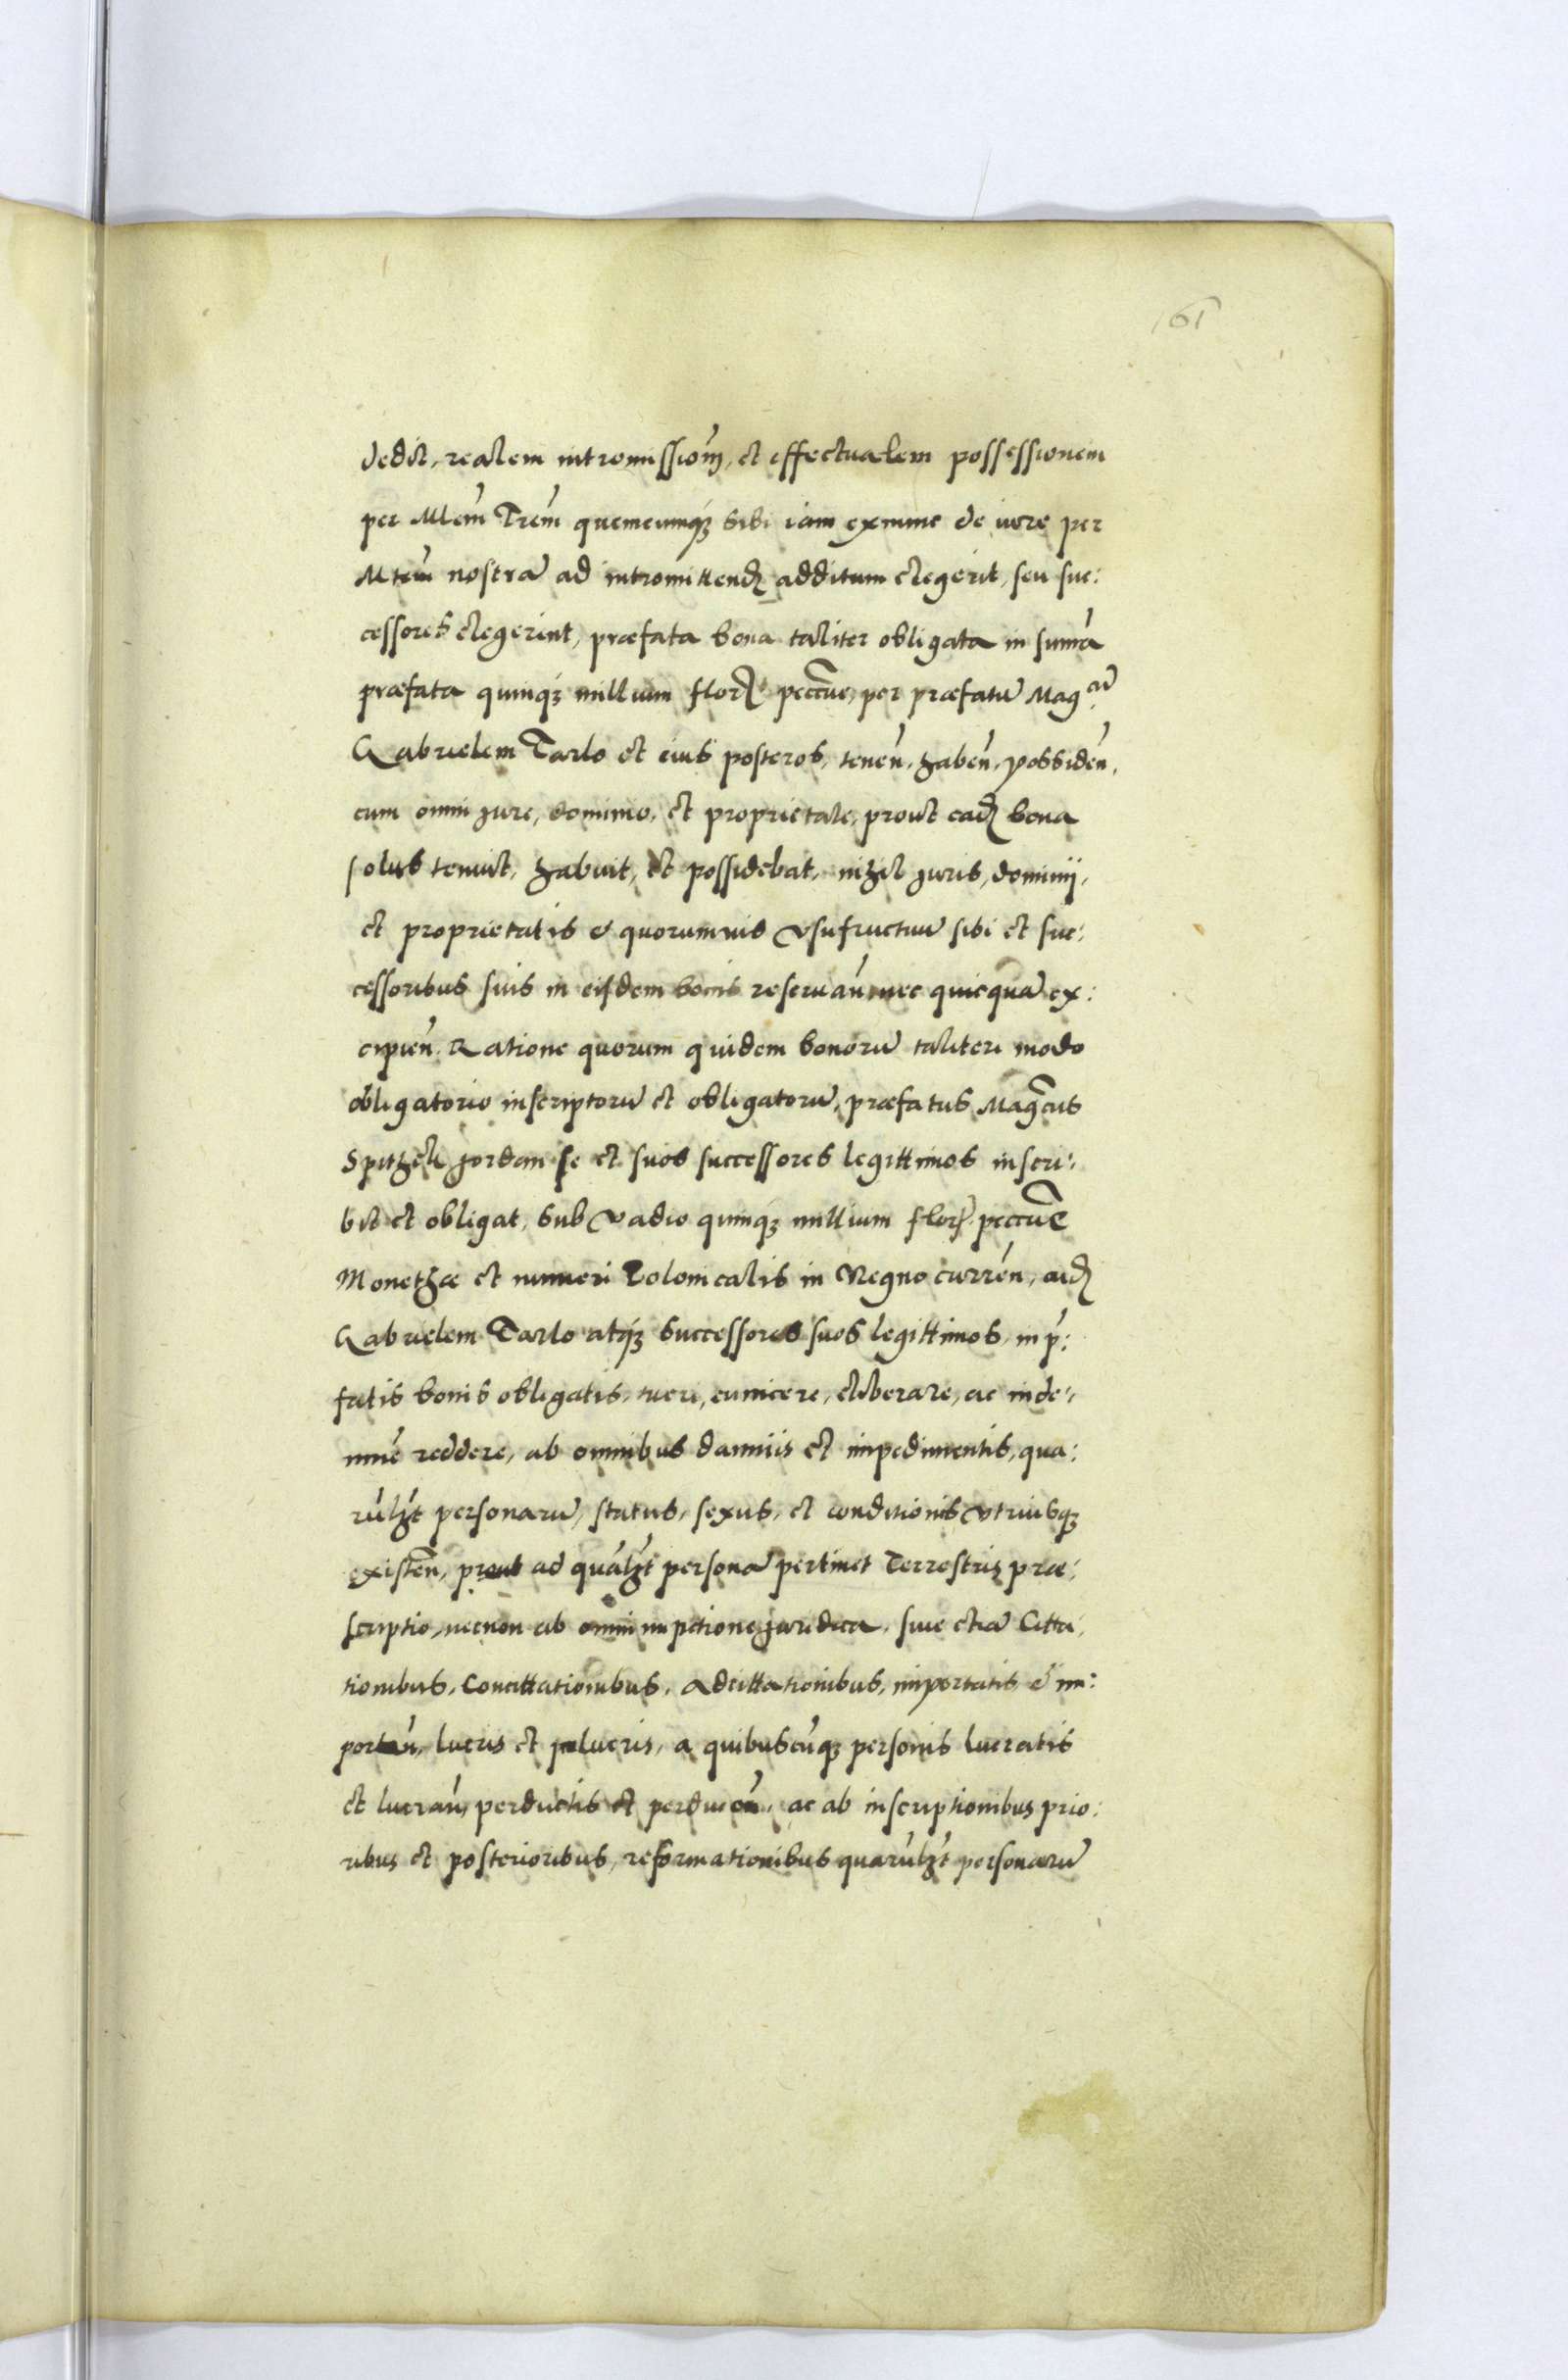 161
dedit, realem intromissiom̃, et effectualem possessionem
per Mlem̃ Trem̃ quemcumqȝ sibi iam exnunc de iure per
Mtem̃ nostrã ad intromittend̃ additum elegerit, seu suc:
cessores elegerint, præfata bona taliter obligata in sum̃a
præfata quinqȝ millium flor̃ peccũæ, per præfatũ Magcũ
Gabrielem Tarlo et eius posteros, teneñ, habeñ, possideñ,
cum omni jure, dominio, et proprietate, prout ead̃ bona
solus tenuit, habuit, et possidebat, nihil juris, dominij,
et proprietatis & quorumuis vsufructuũ sibi et suc:
cessoribus suis in eisdem bonis reseruañ, nec quicquã ex:
cipieñ. Ratione quorum quidem bonorũ taliter modo
obligatorio inscriptorũ et obligatorũ, præfatus Mag̃cus
Spithek Jordan se et suos successores legittimos inscri:
bit et obligat, sub vadio quinqȝ millium flor̃ peccũæ
Monethæ et numeri Polonicalis in Regno curreñ, eid̃
Gabrielem Tarlo atqȝ successores suos legittimos, in p̃:
fatis bonis obligatis, tueri, euincere, eliberare, ac inde:
mnẽ reddere, ab omnibus damniis et impedimentis, qua:
rũlȝt personarũ, status, sexus, et conditionis vtriusqȝ
existeñ, prout ad quãlȝt personã pertinet Terrestris præ:
scriptio, necnon ab omni impetitione juridica, siue etiã Citta:
tionibus, Concittationibus, Adcittationibus, importatis & im:
portañ, lucris et lucris, a quibuscũqȝ personis lucratis
et lucrañ, perductis et perduceñ, ac ab inscriptionibus prio:
ribus et posterioribus, reformationibus quarũlȝt personarũ